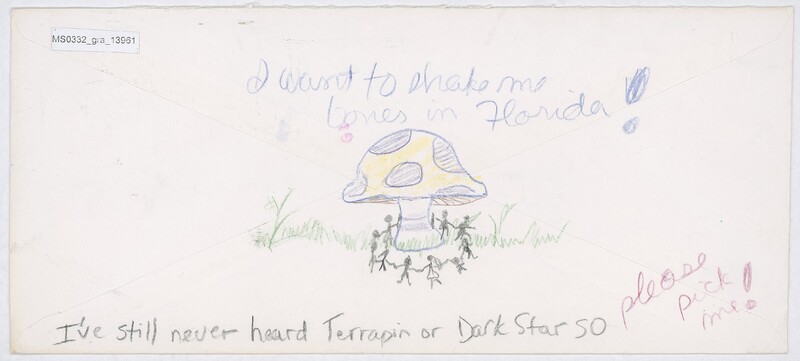 MS0332_gra_13961
I want to shake me
bones in Florida!
I've still never heard Terrapin or Dark Star SO
please
pick
me!